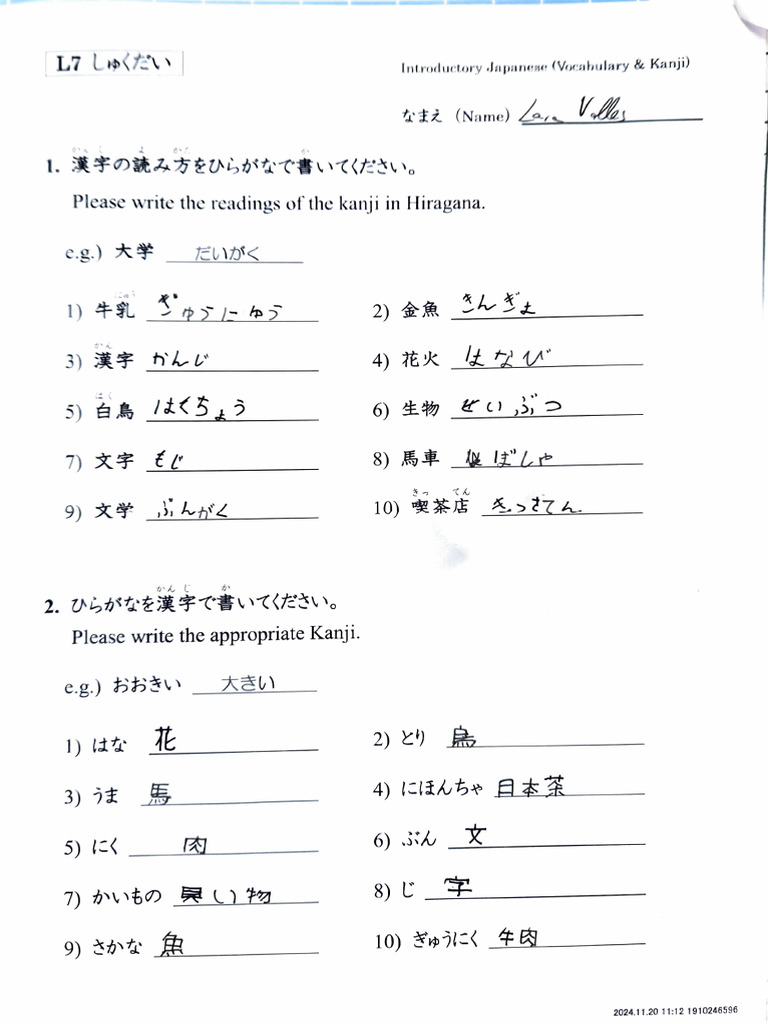 L7 しゅくだい
Introductory Japanese (Vocabulary & Kanji)
なまえ (Name) Lara Valles
かんじ よ かた か
1. 漢字の読み方をひらがなで書いてください。
Please write the readings of the kanji in Hiragana.
e.g.) 大学 だいがく
にゅう
1) 牛乳 ぎゅうにゅう 2) 金魚 きんぎょ
かん
3) 漢字 かんじ 4) 花火 はなび
はく
5) 白鳥 はくちょう 6) 生物 せいぶつ
7) 文字 もじ 8) 馬車 ばしゃ
きっ てん
9) 文学 ぶんがく 10) 喫茶店 きっさてん
かんじ か
2. ひらがなを漢字で書いてください。
Please write the appropriate Kanji.
e.g.) おおきい 大きい
1) はな 花 2) とり 鳥
3) うま 馬 4) にほんちゃ 日本茶
5) にく 肉 6) ぶん 文
7) かいもの 買い物 8) じ 字
9) さかな 魚 10) ぎゅうにく 牛肉
2024.11.20 11:12 1910246596